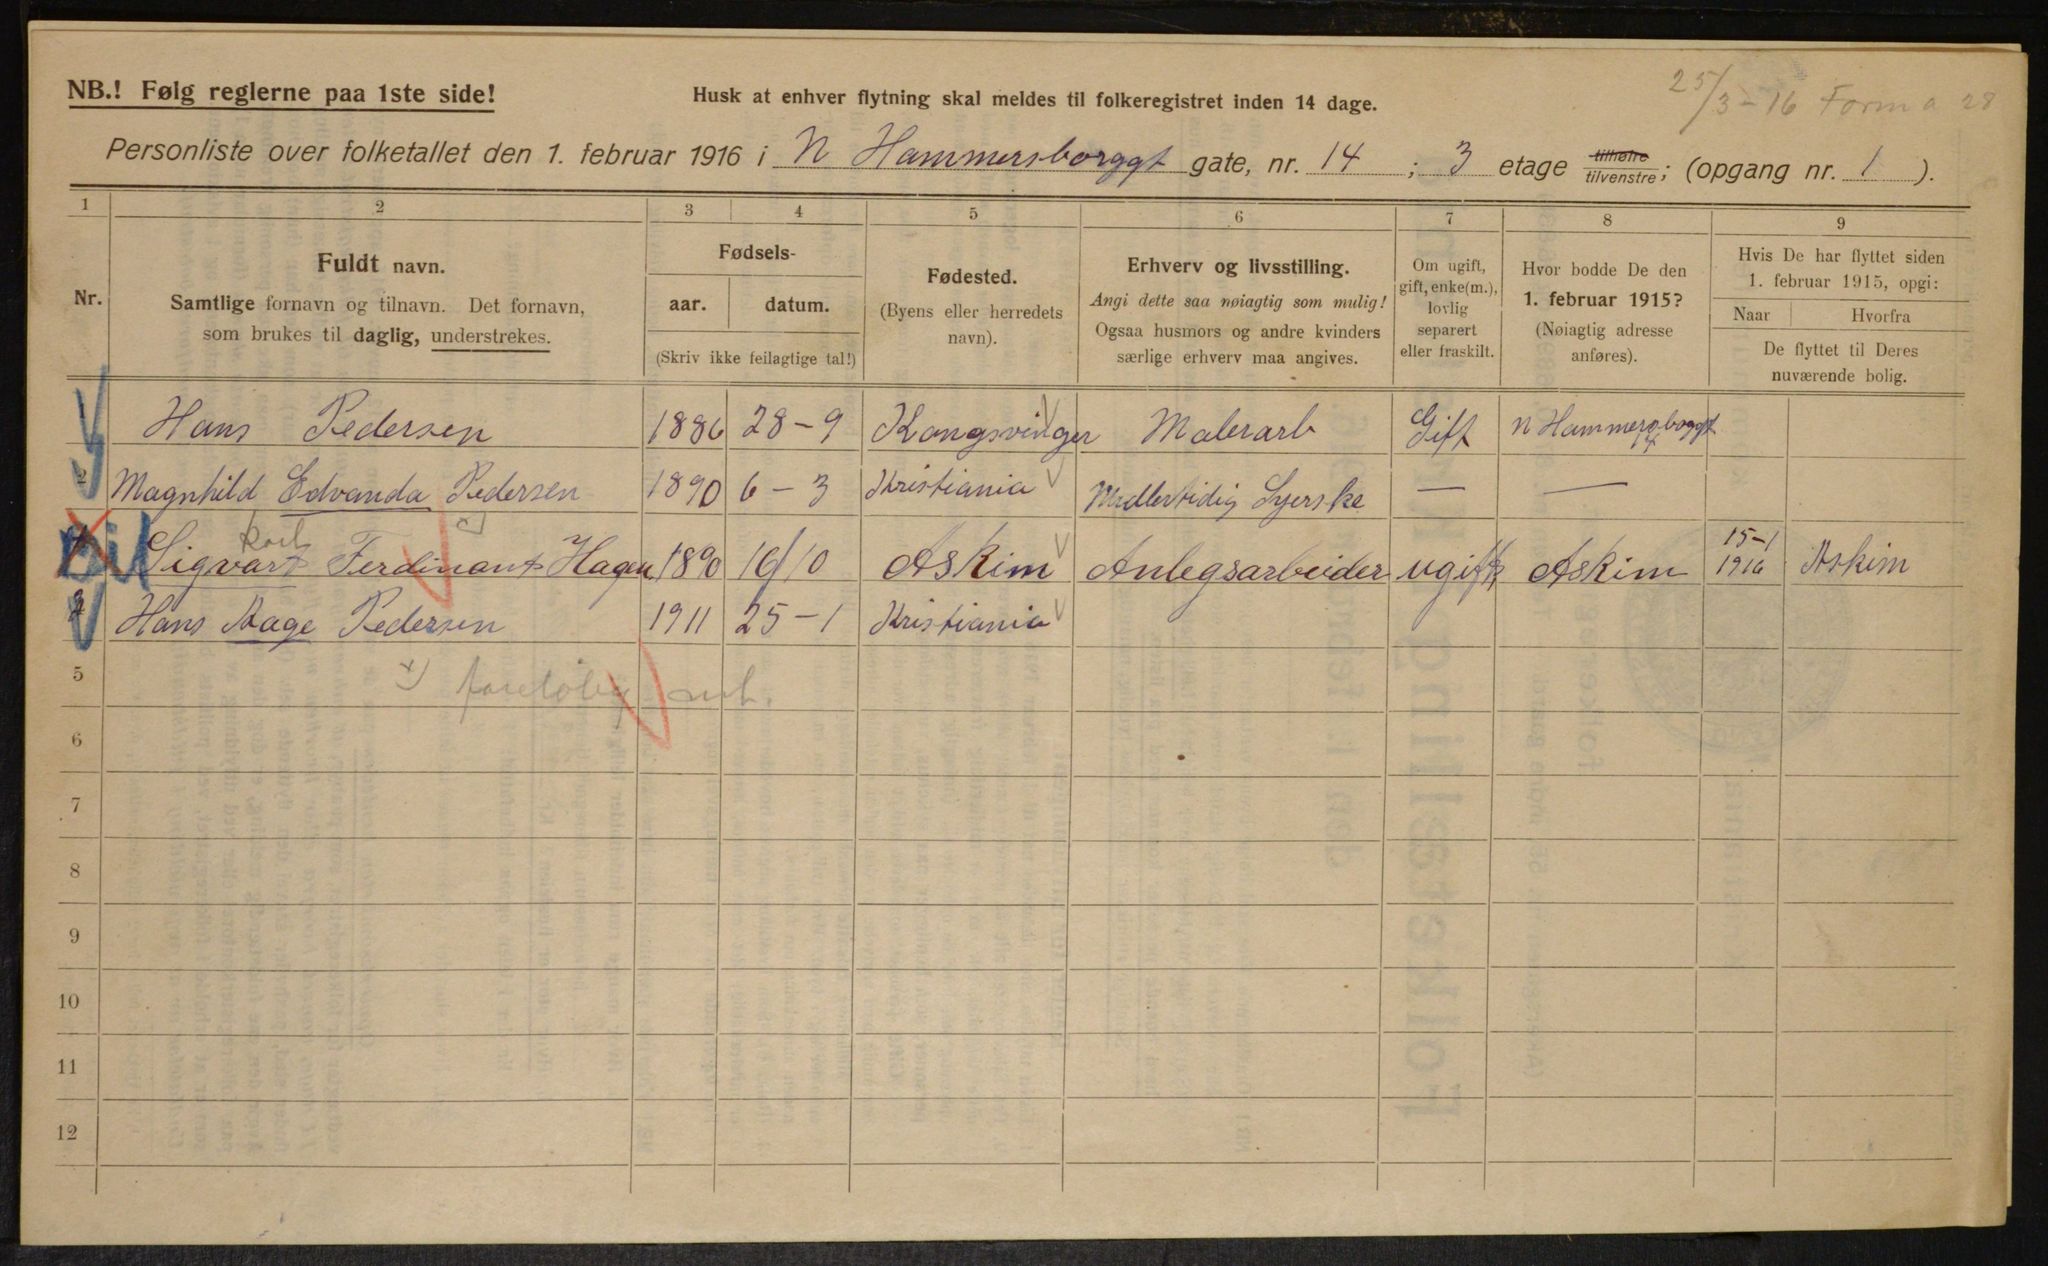 25/3-16 Forma 28
NB.! Følg reglerne paa 1ste side!
Husk at enhver flytning skal meldes til folkeregistret inden 14 dage.
Personliste over folketallet den 1. februar 1916 i N Hammersborggt gate, nr. 14 ; 3 etage tilhøire tilvenstre; (opgang nr. 1 ).
1 2 3 4 5 6 7 8 9
Nr.
Fuldt navn.
Samtlige fornavn og tilnavn. Det fornavn,
som brukes til daglig, understrekes.
Fødsels-
aar. datum.
(Skriv ikke feilagtige tal!)
Fødested.
(Byens eller herredets
navn).
Erhverv og livsstilling.
Angi dette saa nøiagtig som mulig!
Ogsaa husmors og andre kvinders
særlige erhverv maa angives.
Om ugift,
gift, enke(m.),
lovlig
separert
eller fraskilt.
Hvor bodde De den
1. februar 1915?
(Nøiagtig adresse
anføres).
Hvis De har flyttet siden
1. februar 1915, opgi:
Naar Hvorfra
De flyttet til Deres
nuværende bolig.
Hans Pedersen 1886 28-9 Kongsvinger Malerarb Gift N Hammersborggt 14
2 Magnhild Edvanda Pedersen 1890 6-3 Kristiania Midlertidig Syerske — —
Sigvart Ferdinant Hagen 1890 10/10 Askim Anlegsarbeider ugift Askim 15-1 1916 Askim
Hans Aage Pedersen 1911 25-1 Kristiania
5 x) foreløbig
6
7
8
9
10
11
12